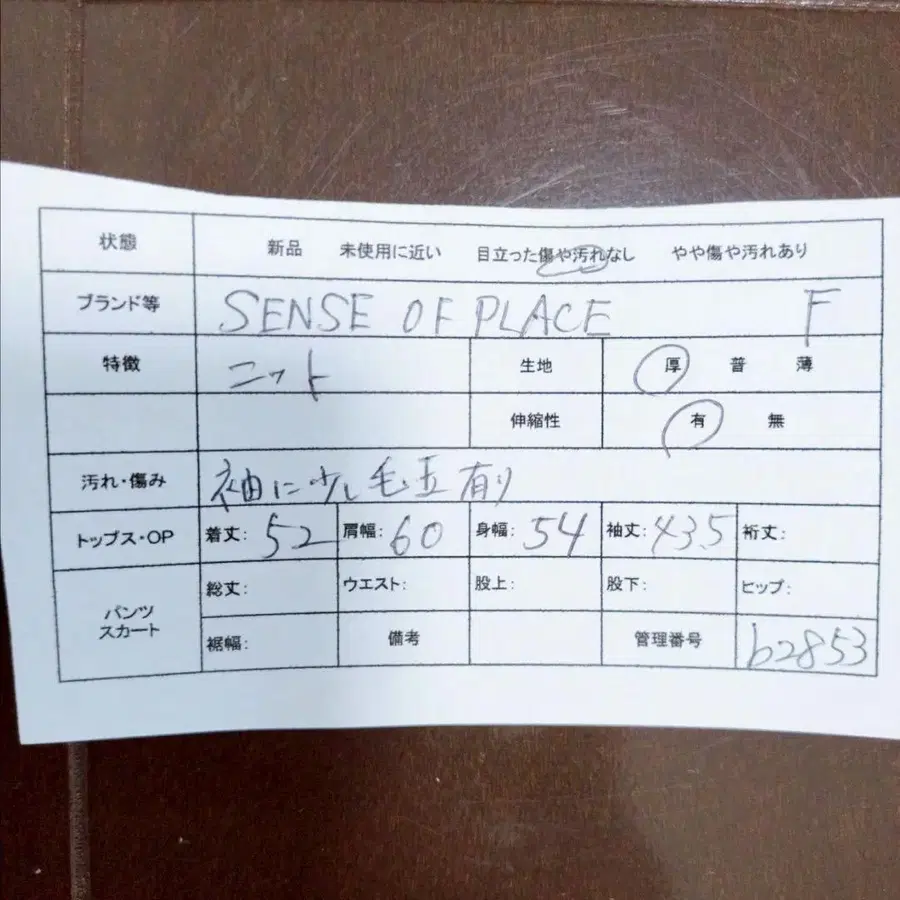 状態 新品 未使用に近い 目立った傷や汚れなし やや傷や汚れあり
ブランド等 SENSE OF PLACE F
特徴 ニット 生地 厚 普 薄
伸縮性 有 無
汚れ・傷み 袖に少し毛玉有り
トップス・OP 着丈: 52 肩幅: 60 身幅: 54 袖丈: 43.5 裄丈:
パンツ スカート 総丈: ウエスト: 股上: 股下: ヒップ:
裾幅: 備考 管理番号 b2853